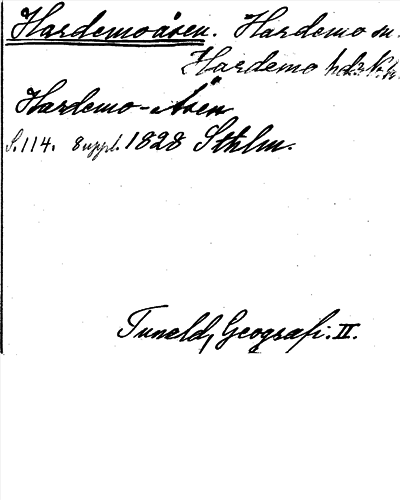 Hardemoåsen. Hardemo sn.
Hardemo hd.
Hardemo-Åsen
S. 114. Suppl. 1828 Sthlm.
Tuneld, Geografi. II.